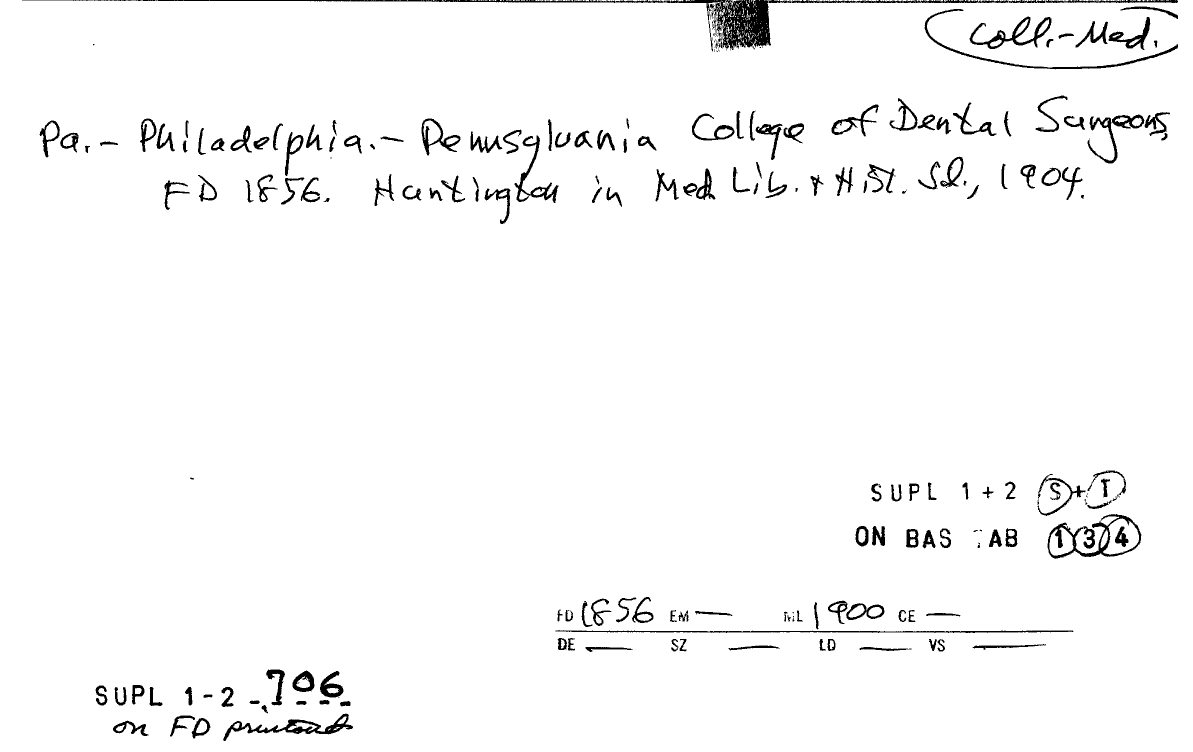 Coll.-Med.
Pa.- Philadelphia.- Pennsylvania College of Dental Surgeons,
FD 1856. Huntington in Med Lib. + Hist. Jl., 1904.
SUPL 1+2 S+T
ON BAS TAB 1 3 4
FD 1856 EM — ML 1900 CE —
DE — SZ — LD — VS —
SUPL 1-2 - 706
on FD printout